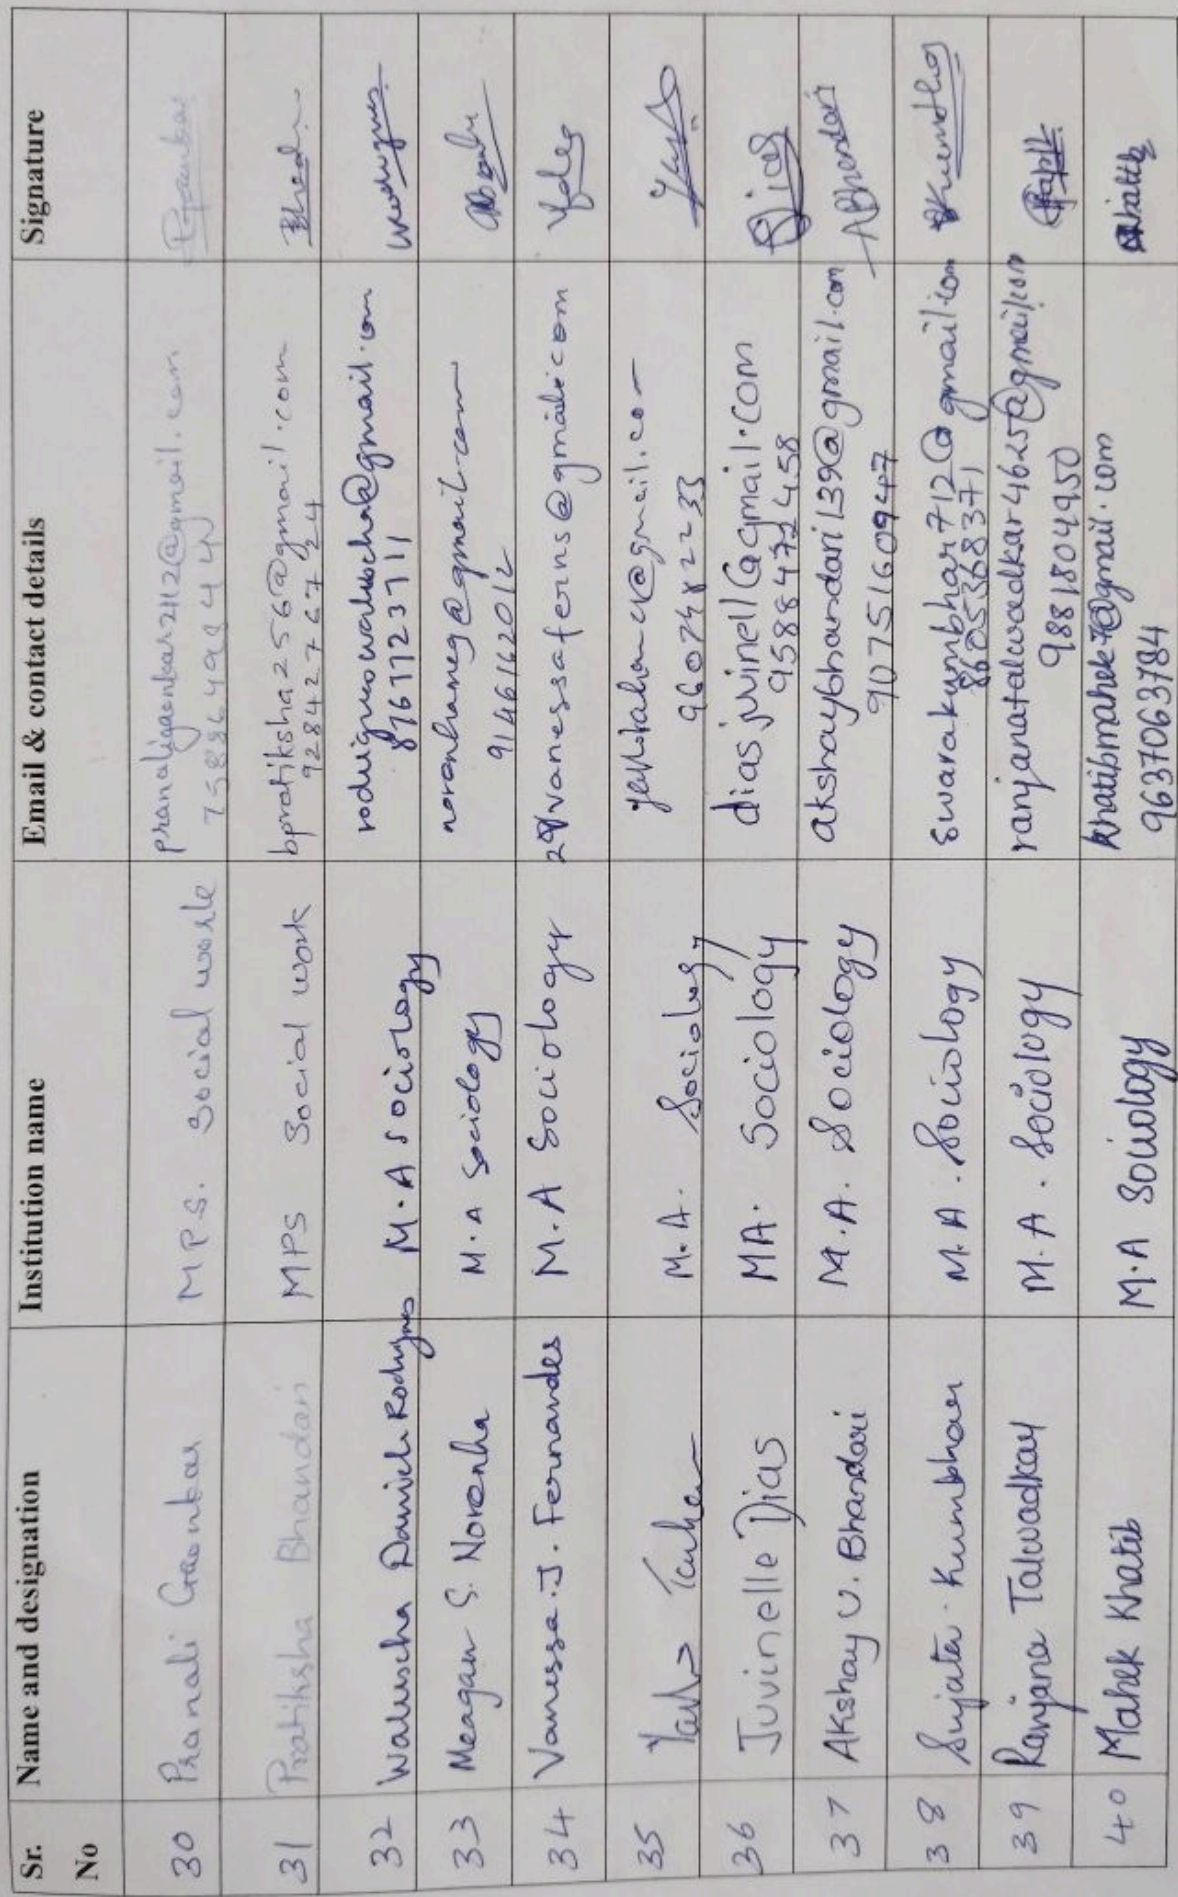 Sr. No Name and designation Institution name Email & contact details Signature
30 Pranali Gaonkar M P S. Social work pranaligaonkar2112@gmail.com
31 Pratiksha Bhandari MPS Social work bpratiksha256@gmail.com
9284276724
32 Waluscha Daniel Rodrigues M.A Sociology rodrigueswaluscha@gmail.com
8767123711
33 Meagan S. Noronha M.A Sociology noronhameg@gmail.com
9146162012
34 Vanessa.J. Fernandes M.A Sociology vanessaferns@gmail.com
35 M.A. Sociology
9607482233
36 Juvinelle Dias MA. Sociology diasjuvinell@gmail.com Dias
9588472458
37 Akshay U. Bhandari M.A. Sociology akshaybhandari139@gmail.com ABhandari
9075160947
38 Sujata Kumbhar M.A. Sociology
8605368371
39 Ranjana Talwadkar M.A. Sociology ranjanatalwadkar4625@gmail.com
9881804950
40 Mahek Khatib M.A Sociology khatibmahek7@gmail.com Khatib
9637063784